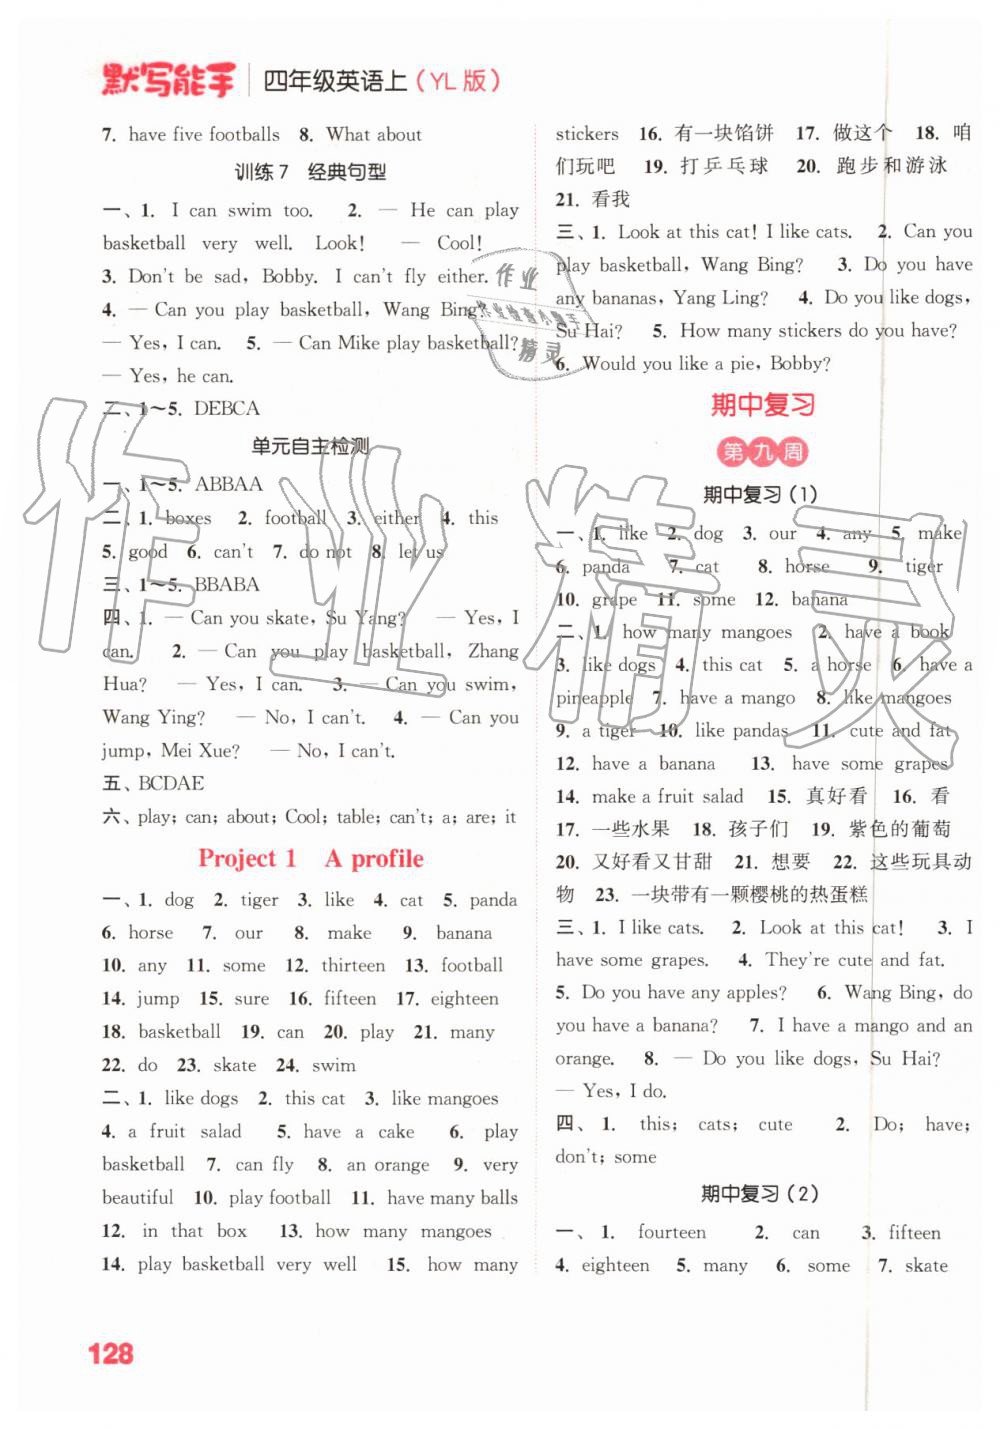 默写能手 四年级英语上（YL 版）
7. have five footballs 8. What about
训练 7 经典句型
一、1. I can swim too. 2. — He can play
basketball very well. Look! — Cool!
3. Don't be sad, Bobby. I can't fly either.
4. — Can you play basketball, Wang Bing?
— Yes, I can. 5. — Can Mike play basketball?
— Yes, he can.
二、1～5. DEBCA
单元自主检测
一、1～5. ABBAA
二、1. boxes 2. football 3. either 4. this
5. good 6. can't 7. do not 8. let us
三、1～5. BBABA
四、1. — Can you skate, Su Yang? — Yes, I
can. 2. — Can you play basketball, Zhang
Hua? — Yes, I can. 3. — Can you swim,
Wang Ying? — No, I can't. 4. — Can you
jump, Mei Xue? — No, I can't.
五、BCDAE
六、play; can; about; Cool; table; can't; a; are; it
Project 1 A profile
一、1. dog 2. tiger 3. like 4. cat 5. panda
6. horse 7. our 8. make 9. banana
10. any 11. some 12. thirteen 13. football
14. jump 15. sure 16. fifteen 17. eighteen
18. basketball 19. can 20. play 21. many
22. do 23. skate 24. swim
二、1. like dogs 2. this cat 3. like mangoes
4. a fruit salad 5. have a cake 6. play
basketball 7. can fly 8. an orange 9. very
beautiful 10. play football 11. have many balls
12. in that box 13. how many mangoes
14. play basketball very well 15. how many
stickers 16. 有一块馅饼 17. 做这个 18. 咱
们玩吧 19. 打乒乓球 20. 跑步和游泳
21. 看我
三、1. Look at this cat! I like cats. 2. Can you
play basketball, Wang Bing? 3. Do you have
any bananas, Yang Ling? 4. Do you like dogs,
Su Hai? 5. How many stickers do you have?
6. Would you like a pie, Bobby?
期中复习
第九周
期中复习（1）
一、1. like 2. dog 3. our 4. any 5. make
6. panda 7. cat 8. horse 9. tiger
10. grape 11. some 12. banana
二、1. how many mangoes 2. have a book
3. like dogs 4. this cat 5. a horse 6. have a
pineapple 7. have a mango 8. like mangoes
9. a tiger 10. like pandas 11. cute and fat
12. have a banana 13. have some grapes
14. make a fruit salad 15. 真好看 16. 看
17. 一些水果 18. 孩子们 19. 紫色的葡萄
20. 又好看又甘甜 21. 想要 22. 这些玩具动
物 23. 一块带有一颗樱桃的热蛋糕
三、1. I like cats. 2. Look at this cat! 3. I
have some grapes. 4. They're cute and fat.
5. Do you have any apples? 6. Wang Bing, do
you have a banana? 7. I have a mango and an
orange. 8. — Do you like dogs, Su Hai?
— Yes, I do.
四、1. this; cats; cute 2. Do; have;
don't; some
期中复习（2）
一、1. fourteen 2. can 3. fifteen
4. eighteen 5. many 6. some 7. skate
128
作业精灵
作业
作业检查小助手
精灵